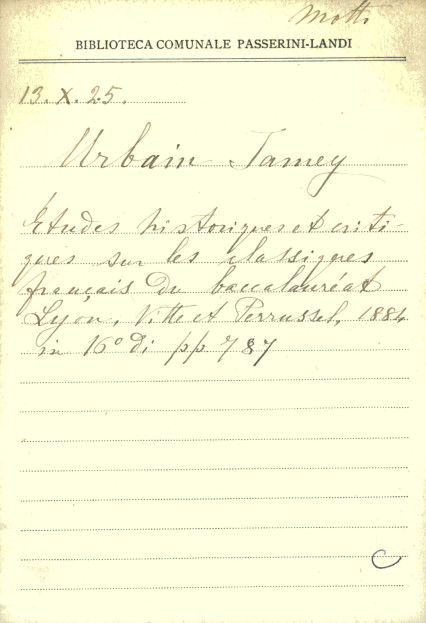 Motti
BIBLIOTECA COMUNALE PASSERINI-LANDI
13. X. 25.
Urbain Jamey
Etudes historiques et criti-
ques sur les classiques
français du baccalauréat
Lyon, Vitte et Perrussel, 1884
in 16° di pp 787
C